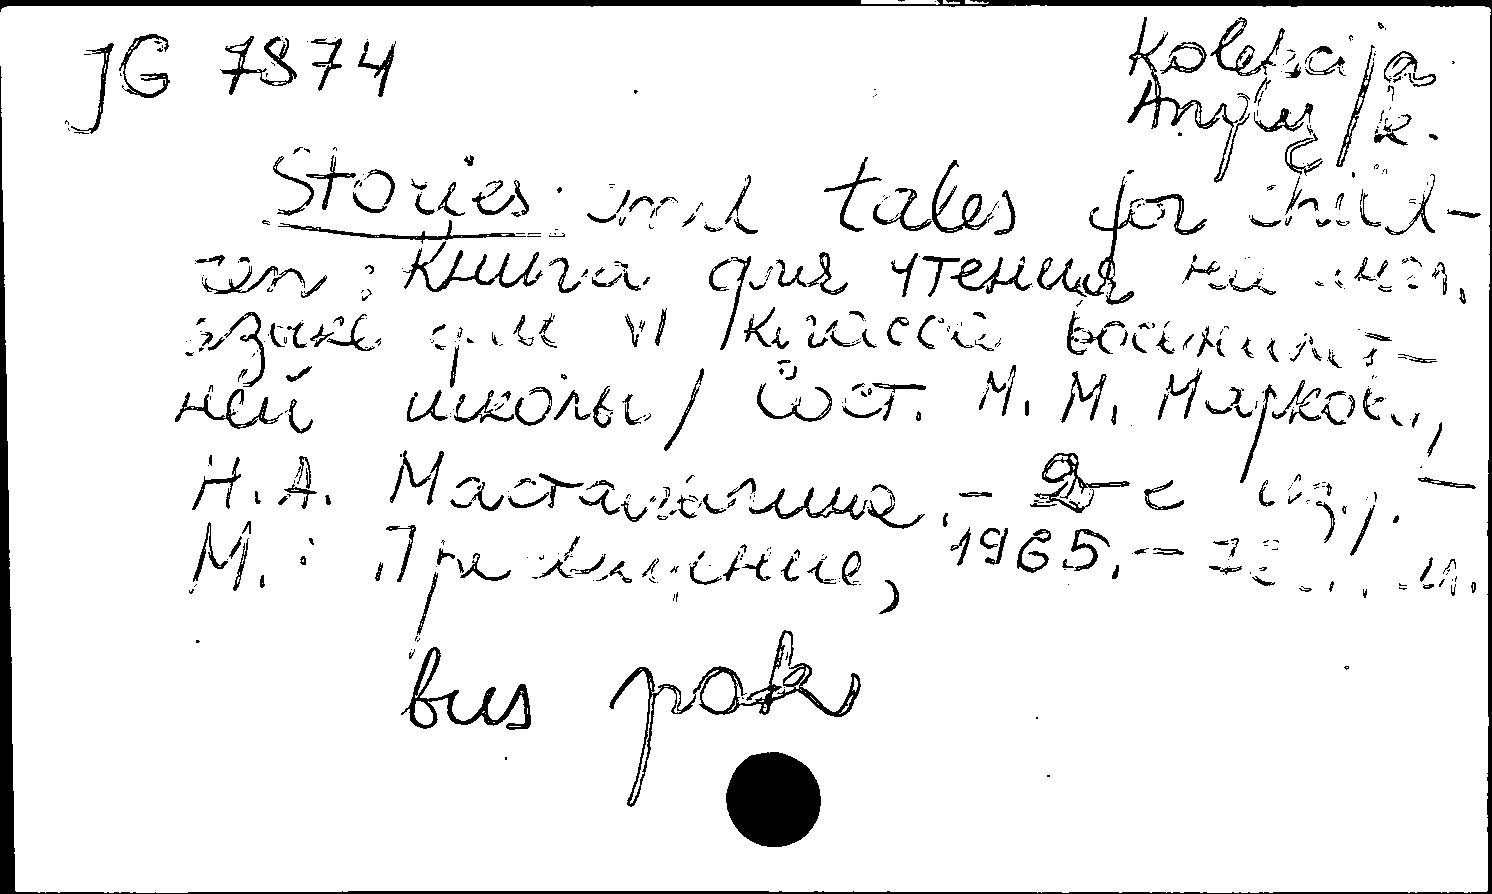 JG 7874
Kolekcija
Anglų / k.
Stories and tales for child-
ren : Книга для чтения на англ.
языке для VI класса восьмилет-
ней школы / Сост. М. М. Маркова,
Н. А. Масталыгина. - 2-е изд. -
М. : Просвещение, 1965. - ил.
bus